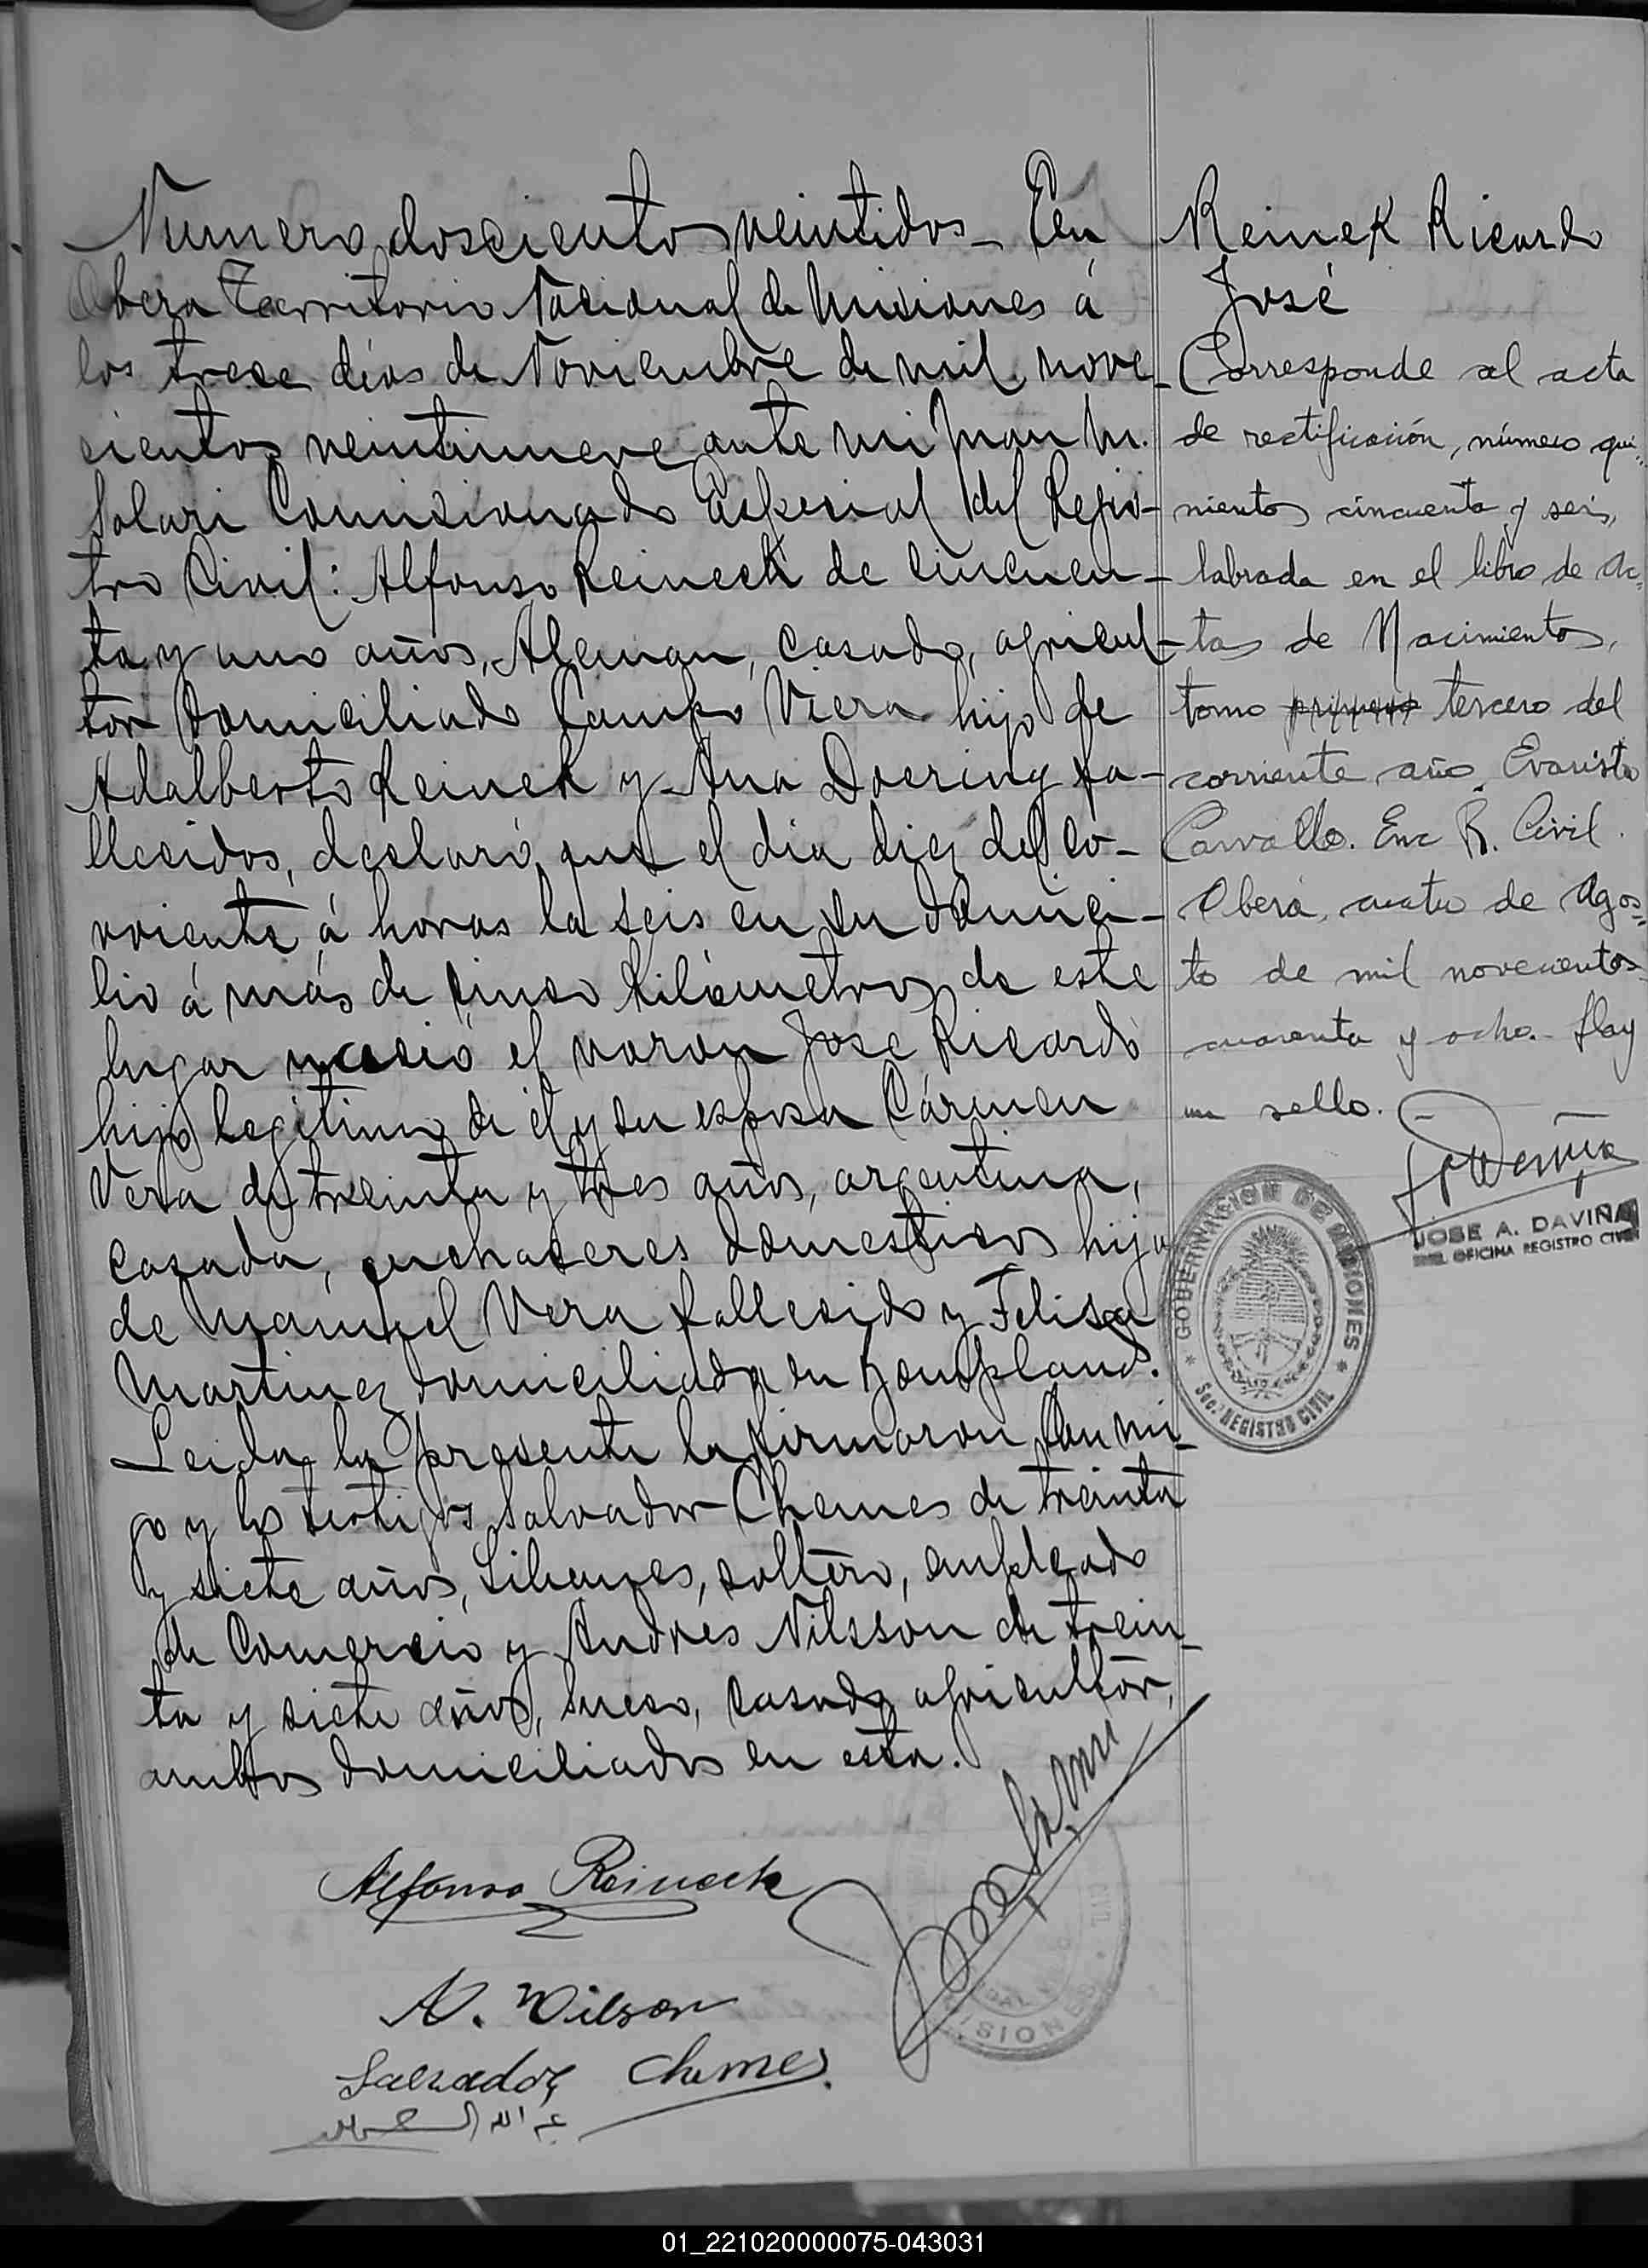 Numero doscientos veintidos - En
Obera Territorio Nacional de Misiones á
los trece dias de Noviembre de mil nove-
cientos veintinueve ante mi Juan M.
Solari Comisionado Especial del Regis-
tro Civil: Alfonso Reineck de cincuen-
ta y uno años, Aleman, casado, agricul-
tor domiciliado Campo Viera hijo de
Adalberto Reinek y Ana Doering fa-
llecidos, declaró que el dia diez del co-
rriente á horas la seis en su domici-
lio á más de cinco Kilómetros de este
lugar nació el varon José Ricardo
hijo legitimo de él y su esposa Cármen
Vera de treinta y tres años, argentina,
casada, quehaceres domesticos hija
de Manuel Vera fallecido y Felisa
Martinez domiciliada en Bonpland.
Leida la presente la firmaron conmi-
go y los testigos Salvador Chemes de treinta
y siete años, Libanes, soltero, empleado
de Comercio y Andrés Nilsson de trein-
ta y siete años, Sueco, casado agricultor,
ambos domiciliados en esta.
Alfonso Reineck
A. Nilsson
Salvador Chemes
Reinek Ricardo
José
Corresponde al acta
de rectificación, número qui-
nientos cincuenta y seis,
labrada en el libro de Ac-
tas de Nacimientos,
tomo primero tercero del
corriente año. Evaristo
Carvallo. Enc R. Civil.
Oberá, cuatro de Agos-
to de mil novecientos
cuarenta y ocho. - Hay
un sello.
JOSE A. DAVIÑA
OFICINA REGISTRO CIVIL
GOBERNACION DE MISIONES
Sec. REGISTRO CIVIL
MISIONES
01_221020000075-043031